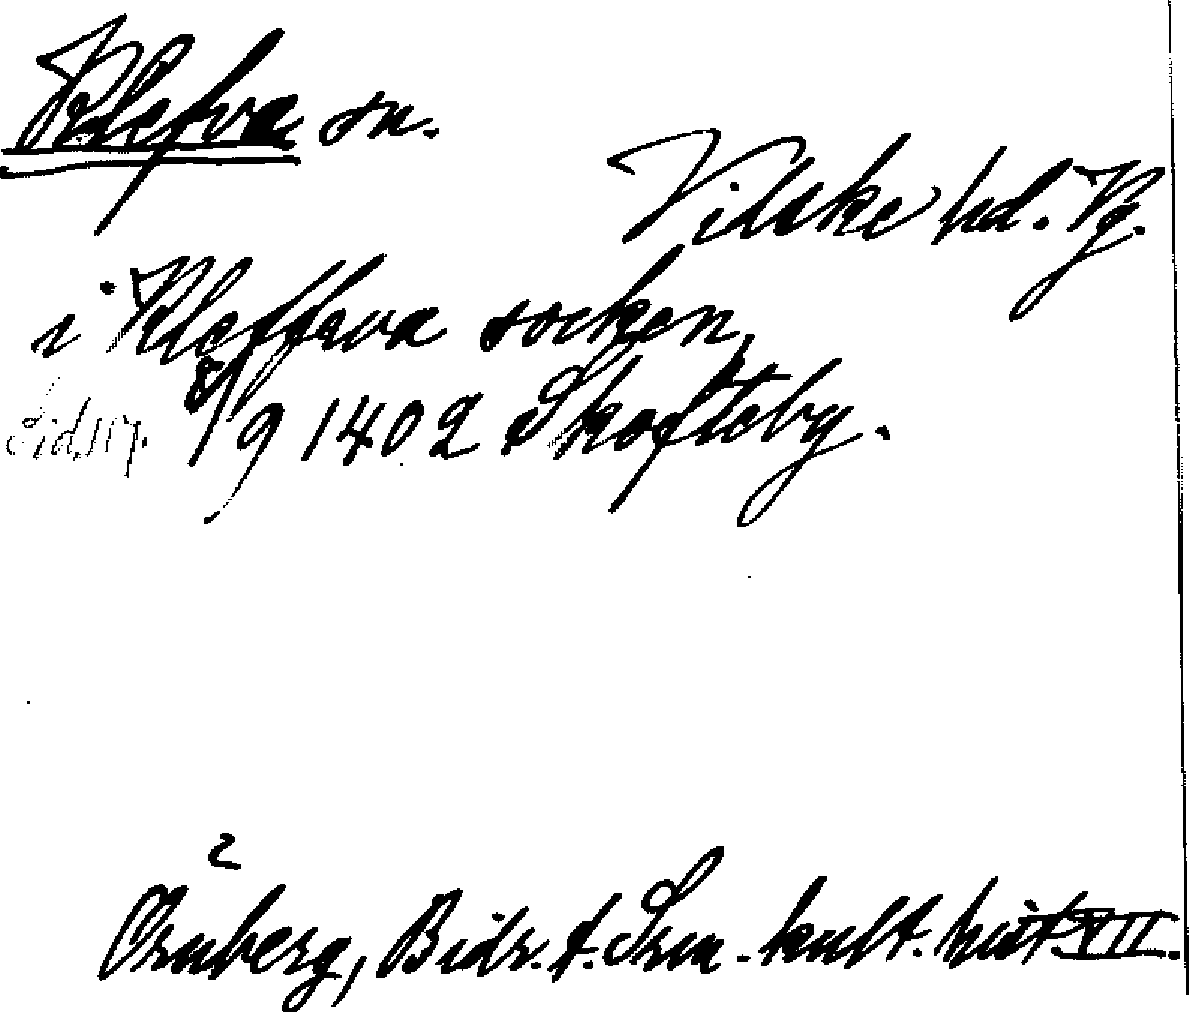 Klefva sn.
Vilske hd. Vg.
i Kleffwa socken,
Sid. 117. 8/9 1402 Skofteby.
Örnberg, Bidr. t. Srm. kult. hist. VII.